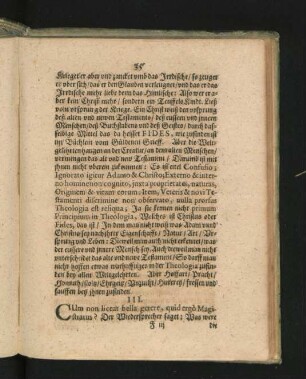 35
Krieget er aber und zancket umb das Irrdische / so zeuget
er ober sich / das er den Glauben verleugnet / und das er das
Irrdische mehr liebe denn das Himlische: Also wer er a-
ber kein Christ mehr / sondern ein Teuffels Kindt. Liess
vom ursprung der Kriege. Ein Christ weiss das ursprung
dess alten und newen Testaments / dess eussern und innern
Menschen / dess Buchstabens und dess Geistes / durch das-
selbige Mittel das da heisset FIDES, wie zu finden ist
im Büchlein vom Güldenen Grieff. Aber die Welt-
gelehrten hangen an der Creatur / an dem alten Menschen /
vermengen das alt und new Testament / Niemand ist mit
ihnen nicht oberein zukommen: Es ist eitel Confusio;
Ignorato igitur Adamo & Christo, Externo & inter-
no homine non cognito, juxta proprietates, naturas,
Originem & vitam eorum, Item, Veteris & novi Te-
stamenti discrimine non observato, nulla prorsus
Theologia est reliqua; Ja sie kennen nicht primum
Principium in Theologia, Welches ist Christus oder
Fides, das ist / In dem man nicht weiss was Adam und
Christus sey nach ihrer Eigenschafft / Natur / Art / Ur-
sprung und Leben: Dieweil man auch nicht erkennet / was
der eussere und innere Mensch sey. Auch dieweil man nicht
unterscheid das alte und newe Testament / So darff man
nicht hoffen etwas vortreffliches in der Theologia zufin-
den bey allen Weltgelehrten. Aber Hoffart / Pracht /
Hochmuth / Geitz / Ehrgeitz / Unzucht / Hurerey / fressen und
sauffen bey ihnen zufinden.
III.
CUm non liceat bella gerere, quid ergò Magi-
stratus? Der Wiedersprecher saget: Was were
F iij